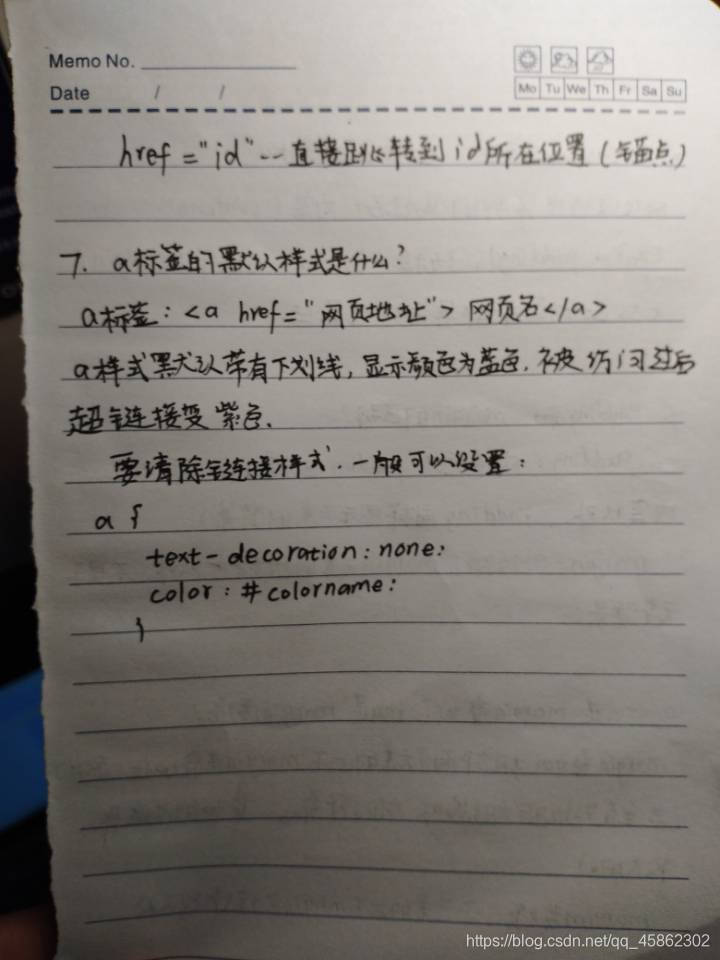 Memo No.
Mo Tu We Th Fr Sa Su
Date / /
href="id"--直接跳转到id所在位置(锚点)
7. a标签的默认样式是什么?
a标签:<a href="网页地址">网页名</a>
a样式默认带有下划线,显示颜色为蓝色.被访问过后
超链接变紫色.
要清除链接样式.一般可以设置:
a {
text-decoration:none:
color:#colorname:
}
https://blog.csdn.net/qq_45862302